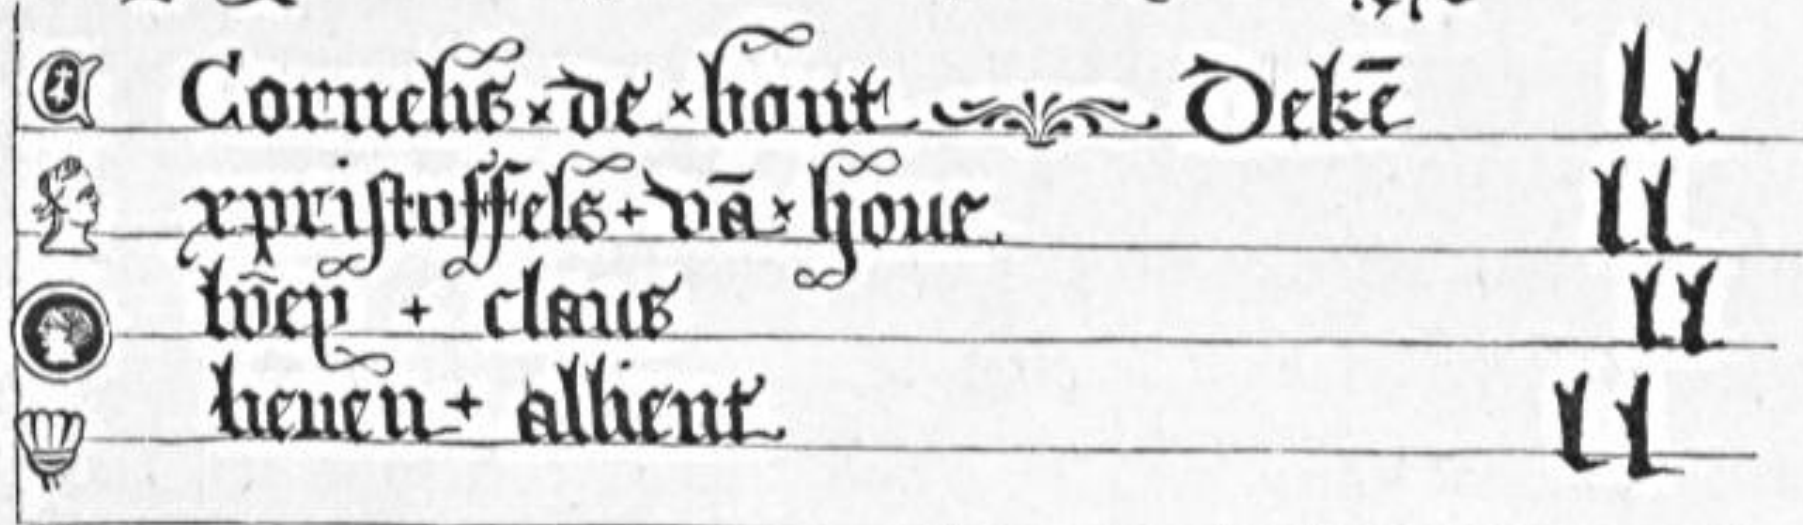 Cornelis × de × bout Dekē ll
xpristoffels + vā × houe ll
claus ll
lieuen + allient ll